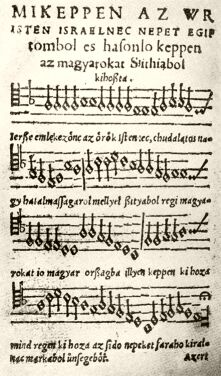 MIKEPPEN AZ WR
ISTEN ISRAELNEC NEPET EGIP
tombol es hasonlo keppen
az magyarokat Szithiabol
kihoßta.
Ierße emlékezőnc az örök istenęc, chudalatos na-
gy hatalmassagarol mellyel ßityabol regi magya-
rokat io magyar orßagba illyen keppen ki hoza
mind regen ki hoza az sido nepeket faraho kiral-
nac markabol ünsegeből. Azert